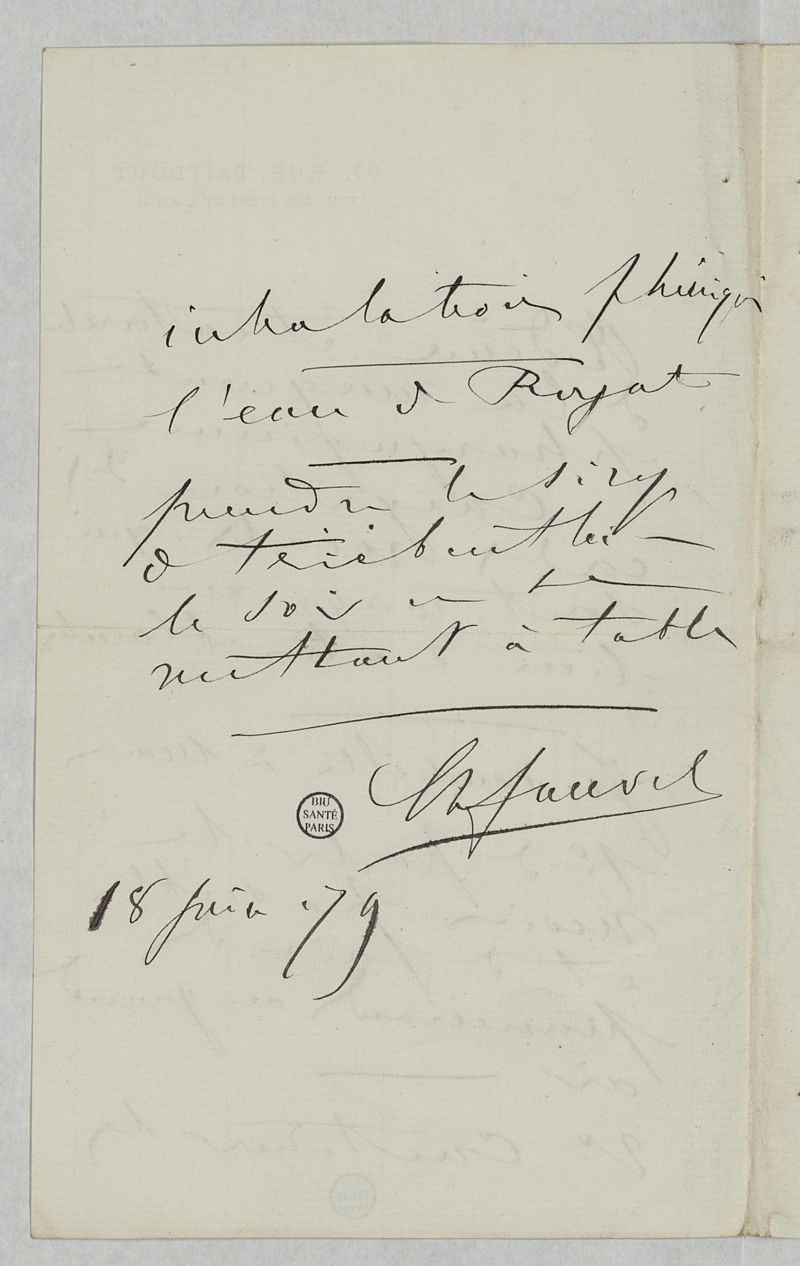 inhalation
l'eau de Royat
prendre le sirop
de térébenthi
le soir en se
mettant à table
Ch fauvel
BIU
SANTÉ
PARIS
18 juin 79